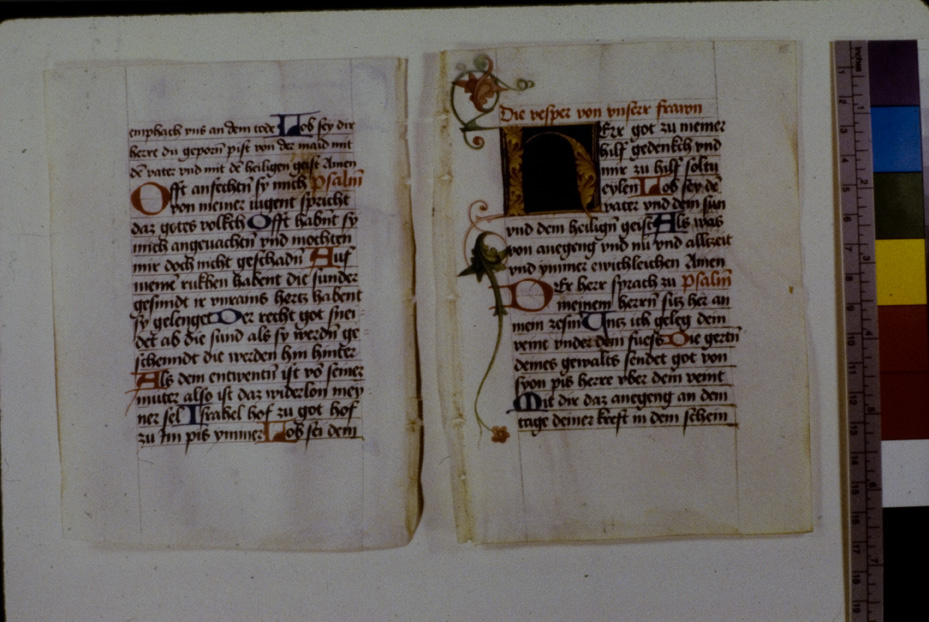 emphach vns an dem tode Lob sey dir
herre du geporn pist von der maid mit
dē vater vnd mit dē heiligen geist Amen
Offt anfechtn̄ sy mich Psalm̄
von meiner iugent spricht
daz gottes volkch Offt habn̄t sy
mich angeuachtn̄ vnd mochten
mir doch nicht geschadn̄ Auf
meinē rukken habent die sunder
gesmidt ir vnrains hertz habent
sy gelenget Der recht got snei
det ab die sund als sy werdn̄ ge
schenndt die werden hin hinter
Als dem entwentn̄ ist vō seiner
muter also ist daz widerlon mey
ner sel Israhel hof zu got hof
zu Im pis ymmer Lob sei dem
Die vesper von vnserr frawn
Herr got zu meiner
hilf gedenkch vnd
mir zu hilf soltu
eylen Lob sey dē
vater vnd dem sun
vnd dem heilign̄ geist Als was
von anegeng vnd nu vnd alltzeit
vnd ymmer ewichleichen Amen
Der herr sprach zu Psalm̄
meinem herrn̄ sitz her an
mein zesm Untz ich geleg dein
veint vnder dein fuess Die gertn̄
deines gewalts sendet got von
syon pis herre vber dein veint
Mit dir daz anegeng an dem
tage deiner kreft in dem schein